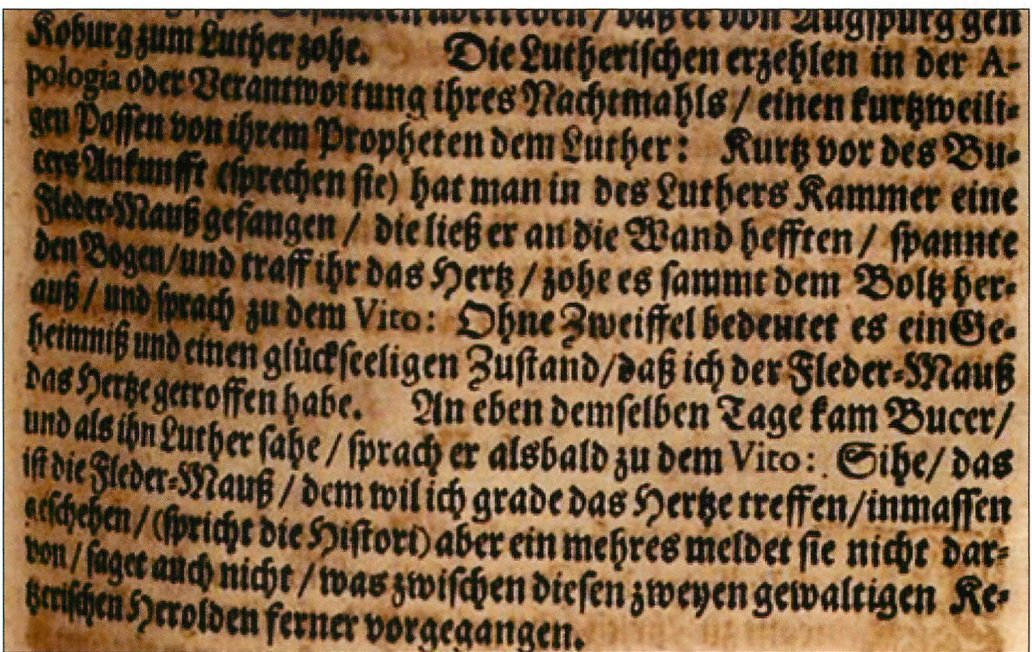 daß er von Augspurg gen
Koburg zum Luther zohe. Die Lutherischen erzehlen in der A-
pologia oder Verantwortung ihres Nachtmahls / einen kurtzweili-
gen Possen von ihrem Propheten dem Luther: Kurtz vor des Bu-
cers Ankunfft (sprechen sie) hat man in des Luthers Kammer eine
Fleder-Mauß gefangen / die ließ er an die Wand hefften / spannte
den Bogen/und traff ihr das Hertz / zohe es sammt dem Boltz her-
auß / und sprach zu dem Vito: Ohne Zweiffel bedeutet es ein Ge-
heimniß und einen glückseeligen Zustand/daß ich der Fleder-Mauß
das Hertze getroffen habe. An eben demselben Tage kam Bucer/
und als ihn Luther sahe / sprach er alsbald zu dem Vito: Sihe/ das
ist die Fleder-Mauß / dem wil ich grade das Hertze treffen/inmassen
geschehen / (spricht die Histori) aber ein mehres meldet sie nicht dar-
von/ saget auch nicht / was zwischen diesen zweyen gewaltigen Ke-
tzerischen Herolden ferner vorgegangen.